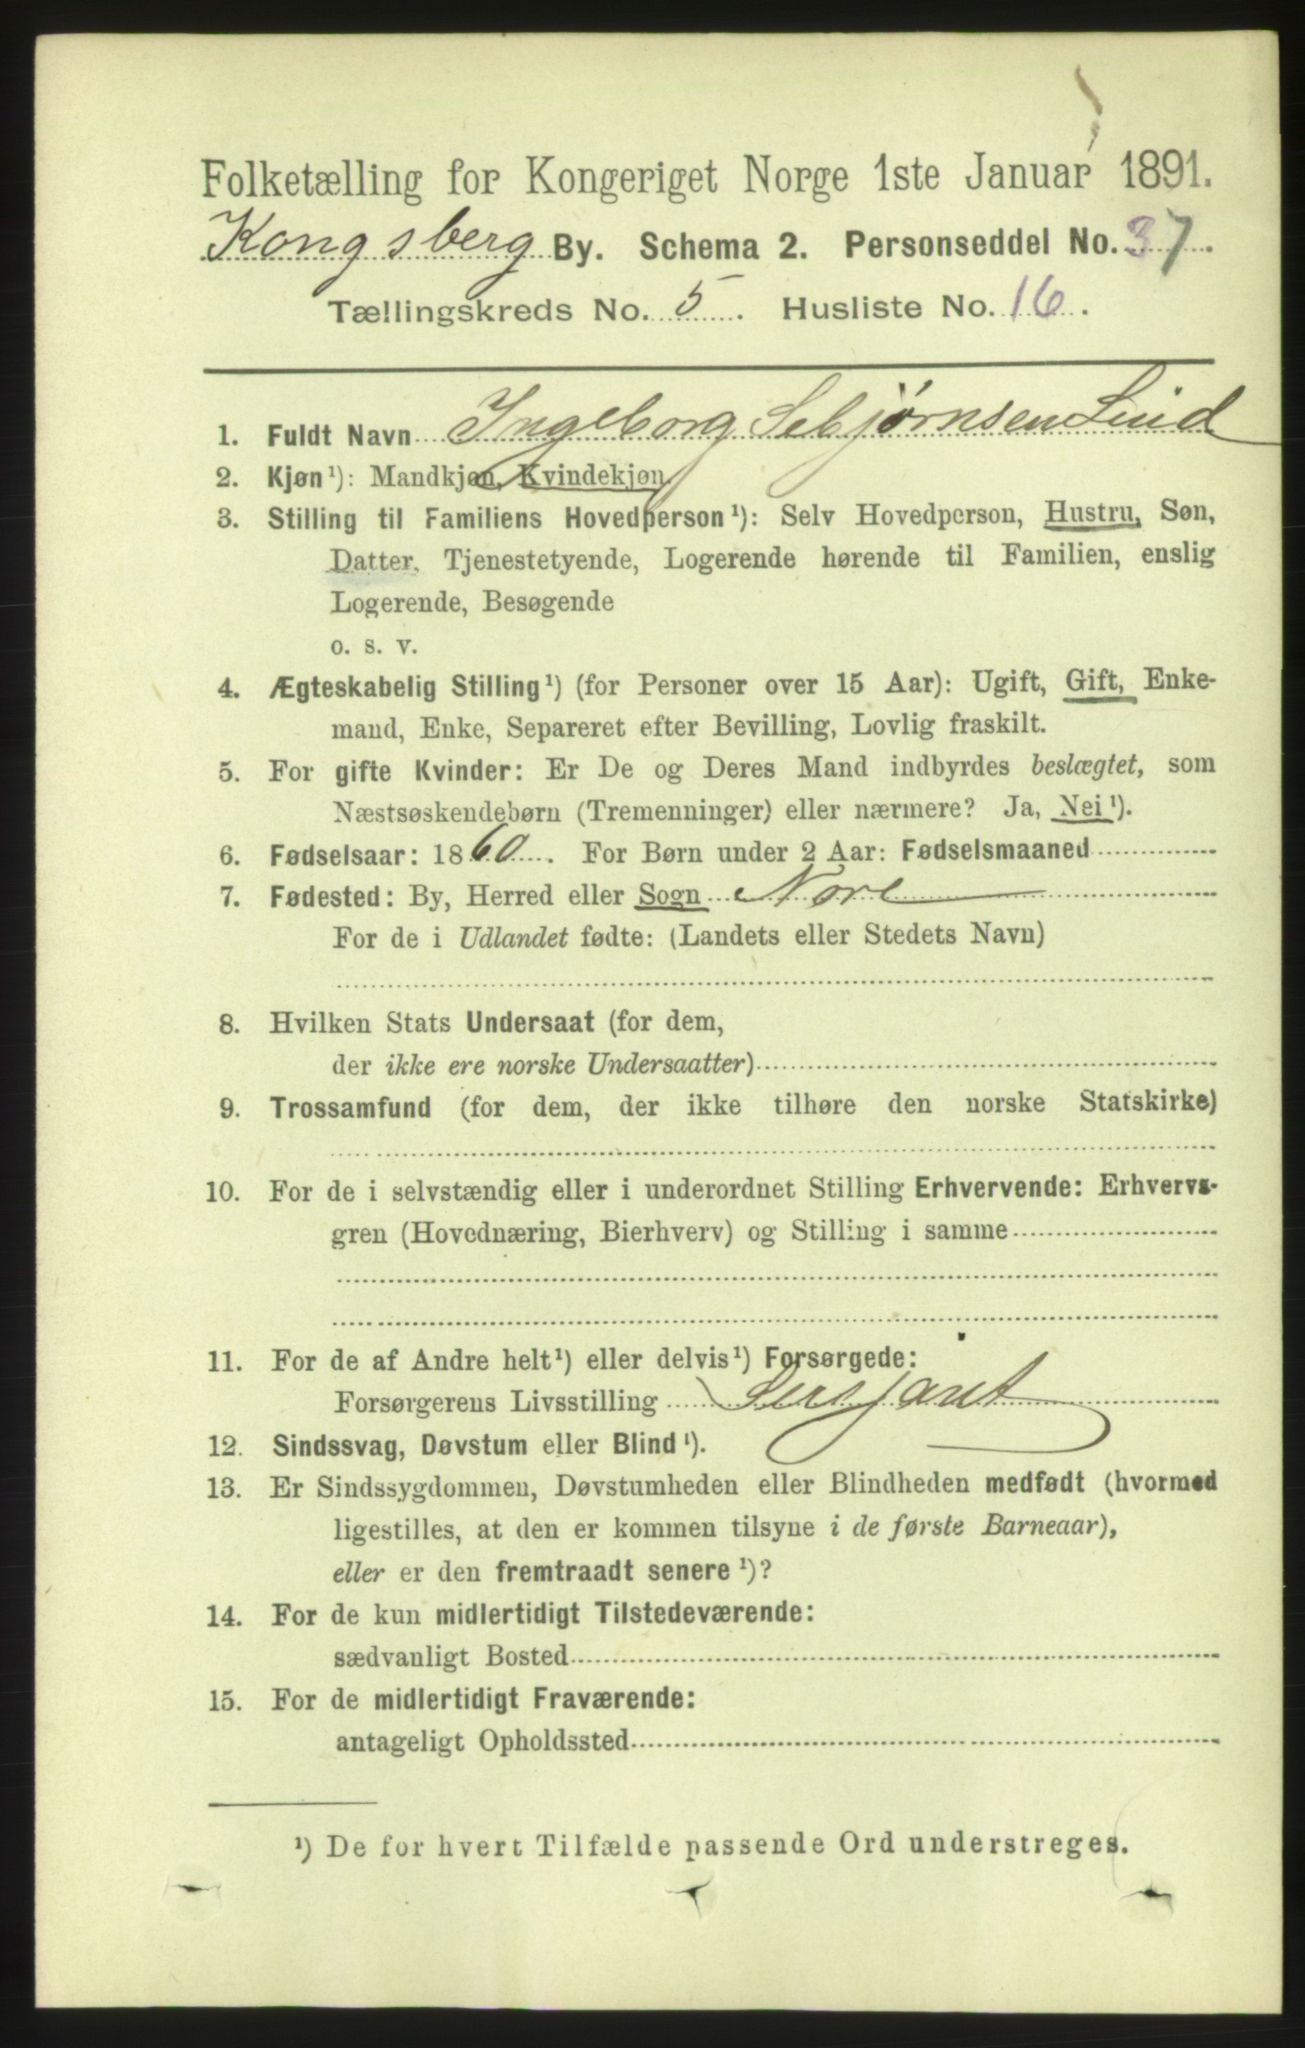 Folketælling for Kongeriget Norge 1ste Januar 1891.
Kongsberg By. Schema 2. Personseddel No. 37.
Tællingskreds No. 5. Husliste No. 16.
1. Fuldt Navn Ingeborg Sebjørnsen Lind
2. Kjøn¹): Mandkjøn, Kvindekjøn.
3. Stilling til Familiens Hovedperson¹): Selv Hovedperson, Hustru, Søn,
Datter, Tjenestetyende, Logerende hørende til Familien, enslig
Logerende, Besøgende
o. s. v.
4. Ægteskabelig Stilling¹) (for Personer over 15 Aar): Ugift, Gift, Enke-
mand, Enke, Separeret efter Bevilling, Lovlig fraskilt.
5. For gifte Kvinder: Er De og Deres Mand indbyrdes beslægtet, som
Næstsøskendebørn (Tremenninger) eller nærmere? Ja, Nei¹).
6. Fødselsaar: 1860. For Børn under 2 Aar: Fødselsmaaned
7. Fødested: By, Herred eller Sogn Nore
For de i Udlandet fødte: (Landets eller Stedets Navn)
8. Hvilken Stats Undersaat (for dem,
der ikke ere norske Undersaatter)
9. Trossamfund (for dem, der ikke tilhøre den norske Statskirke)
10. For de i selvstændig eller i underordnet Stilling Erhvervende: Erhvervs-
gren (Hovednæring, Bierhverv) og Stilling i samme
11. For de af Andre helt¹) eller delvis¹) Forsørgede:
Forsørgerens Livsstilling Sersjant
12. Sindssvag, Døvstum eller Blind¹).
13. Er Sindssygdommen, Døvstumheden eller Blindheden medfødt (hvormed
ligestilles, at den er kommen tilsyne i de første Barneaar),
eller er den fremtraadt senere¹)?
14. For de kun midlertidigt Tilstedeværende:
sædvanligt Bosted
15. For de midlertidigt Fraværende:
antageligt Opholdssted
¹) De for hvert Tilfælde passende Ord understreges.